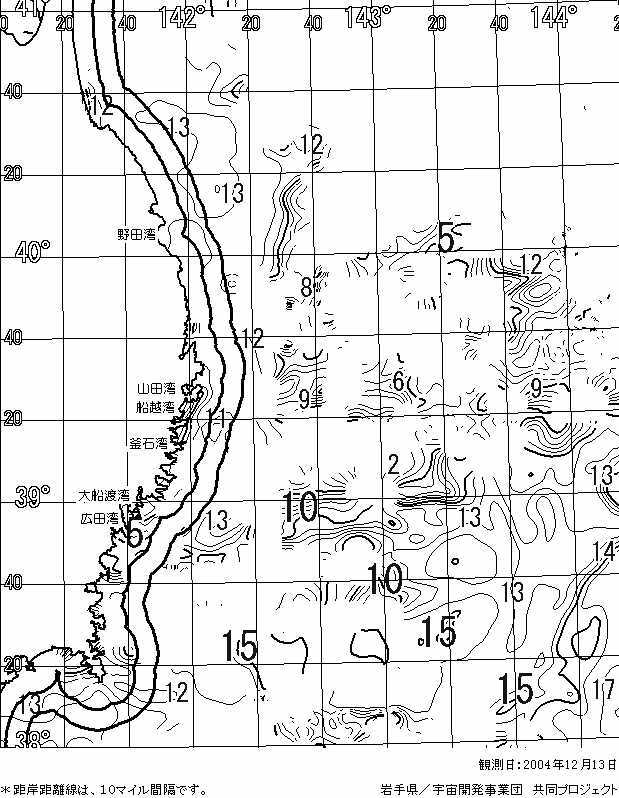 41° 142° 143° 144°
0 40 20 40 20 40 2
40
12
13
12
20
13
野田湾
5
40°
12
8
40
12
山田湾
6
9
船越湾
9
20
11
釜石湾
2
13
大船渡湾
39°
10
広田湾
13
13
14
40
10
13
15
15
20
12
15
17
13
38°
観測日:2004年12月13日
*距岸距離線は、10マイル間隔です。
岩手県/宇宙開発事業団 共同プロジェクト